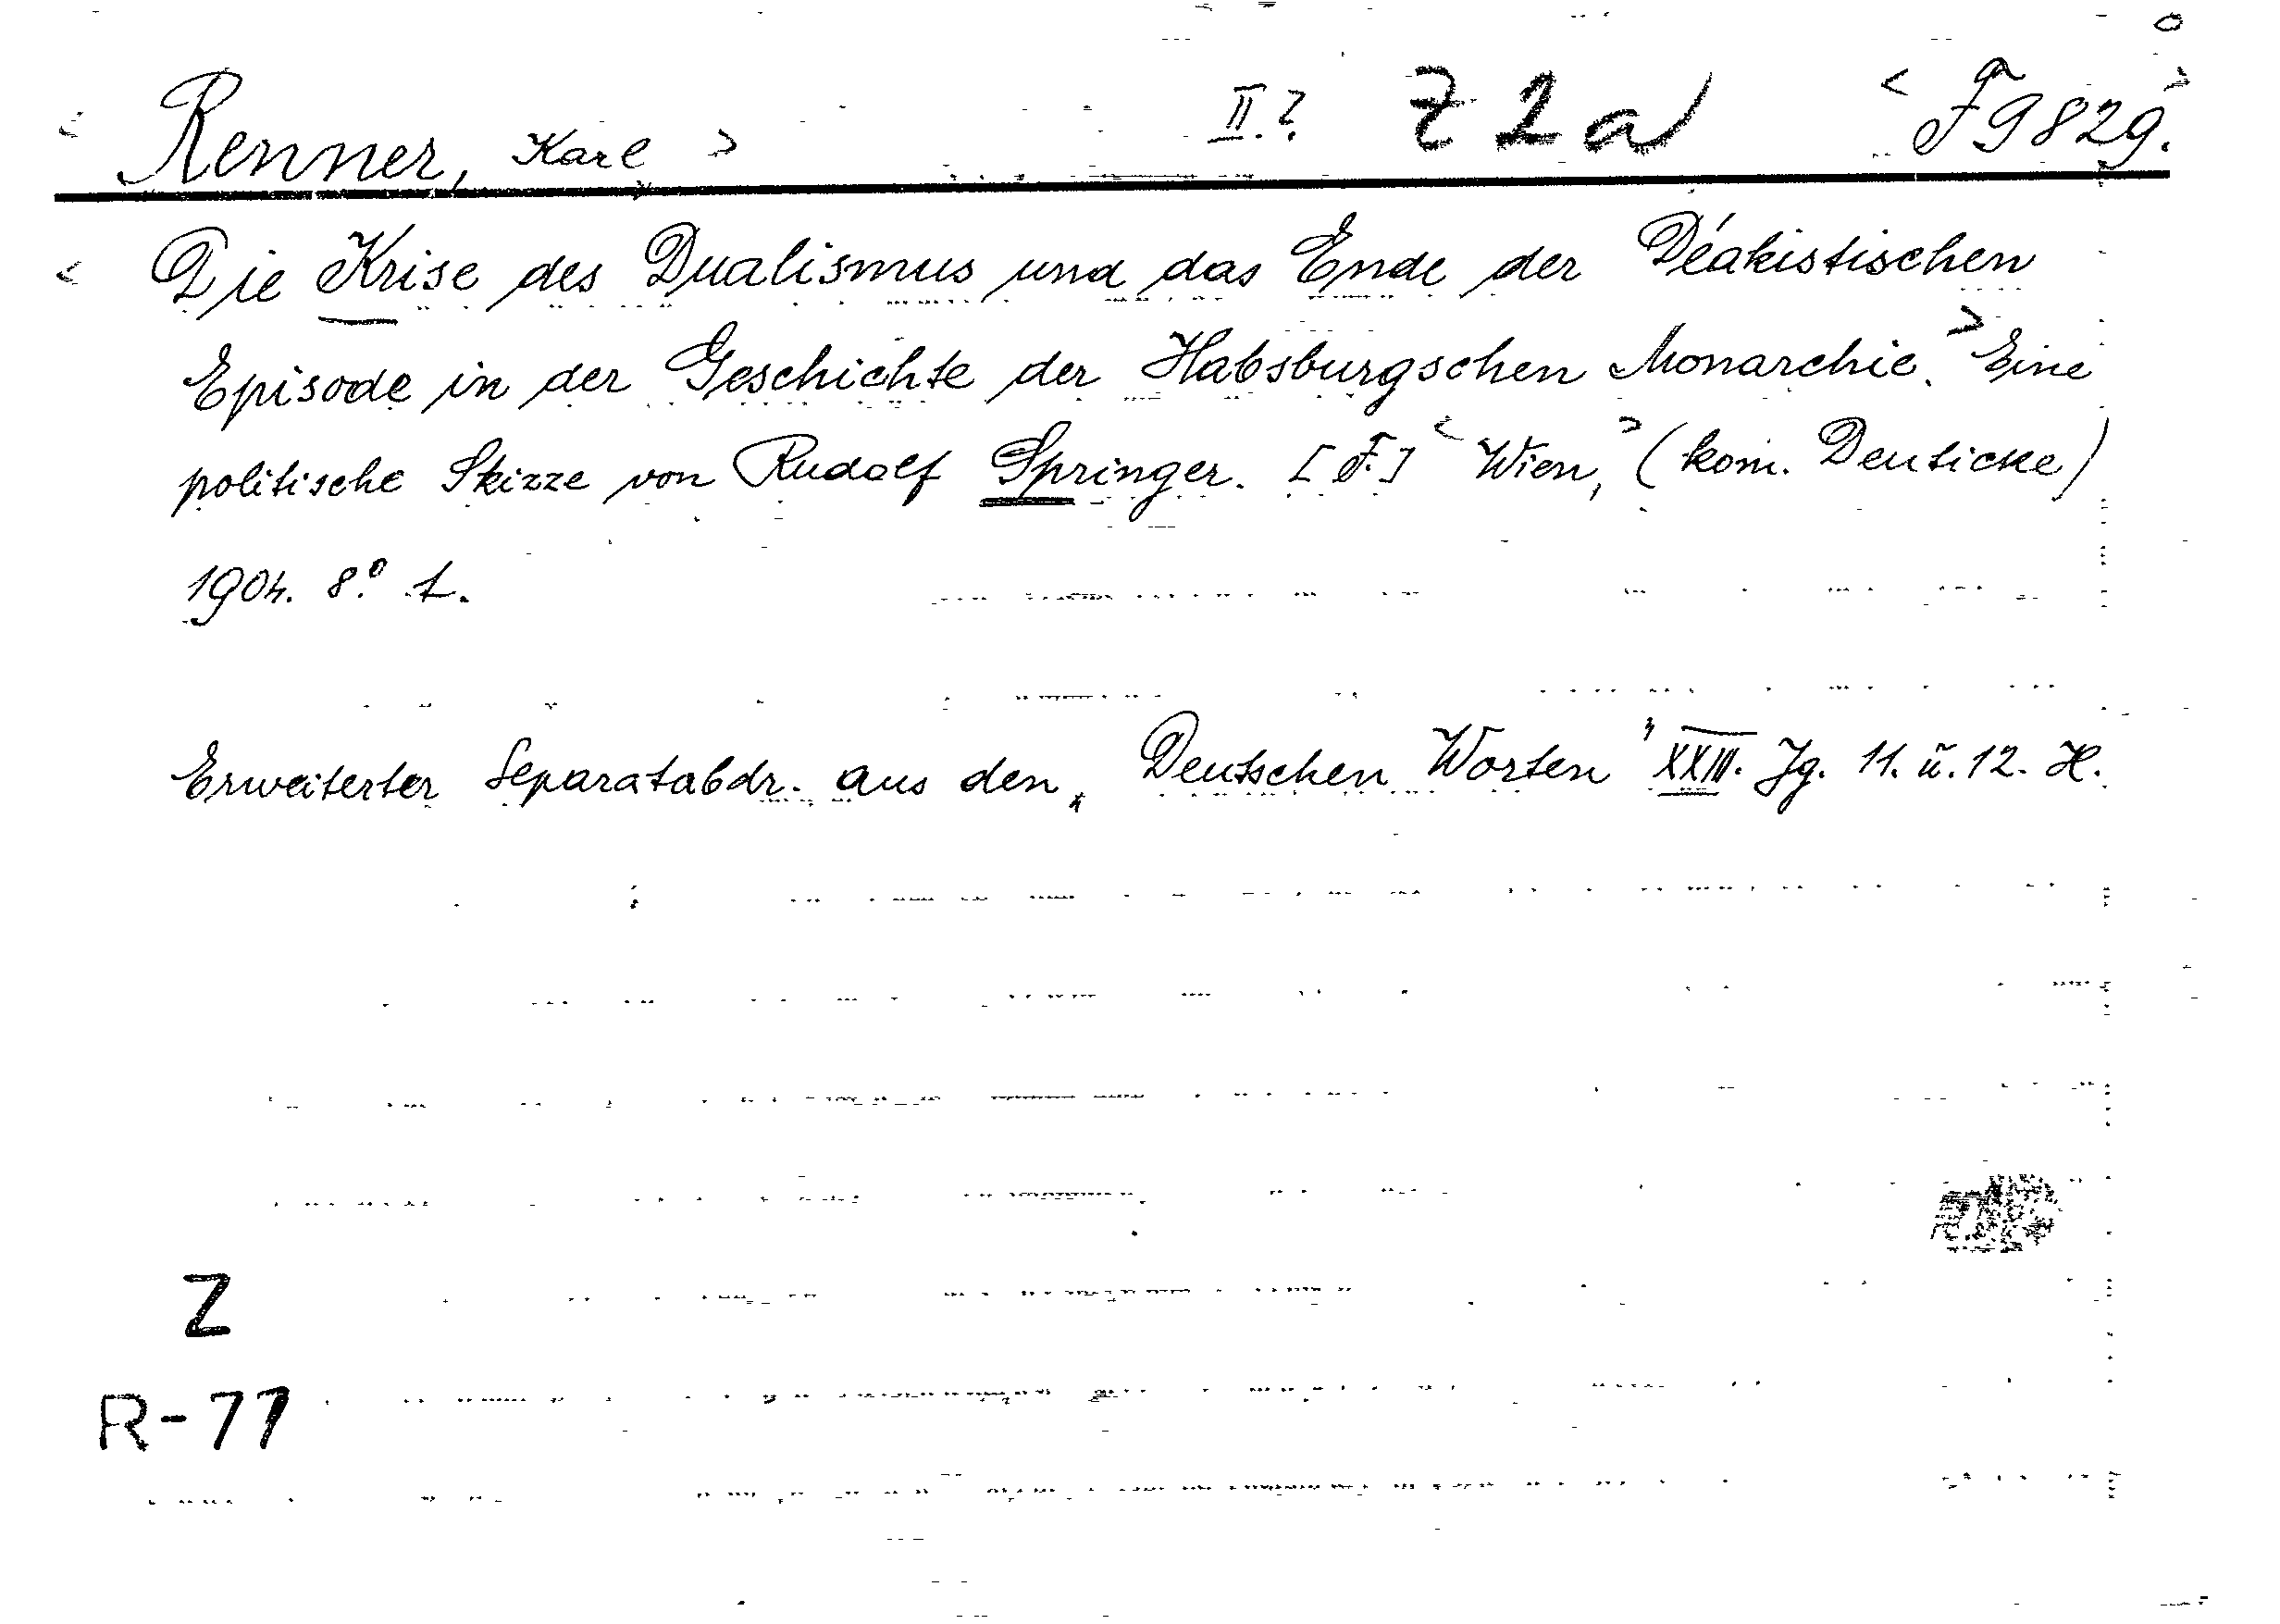 < Renner, Karl > II.? Z 2a < F 9829. >
< Die Krise des Dualismus und das Ende der Déakistischen
Episode in der Geschichte der Habsburgschen Monarchie. > Eine
politische Skizze von Rudolf Springer. [F.] < Wien, > (kom. Deuticke)
1904. 8.° 1.
Erweiterter Separatabdr. aus den „Deutschen Worten" XXIII. Jg. 11. ü. 12. H.
Z
R-77